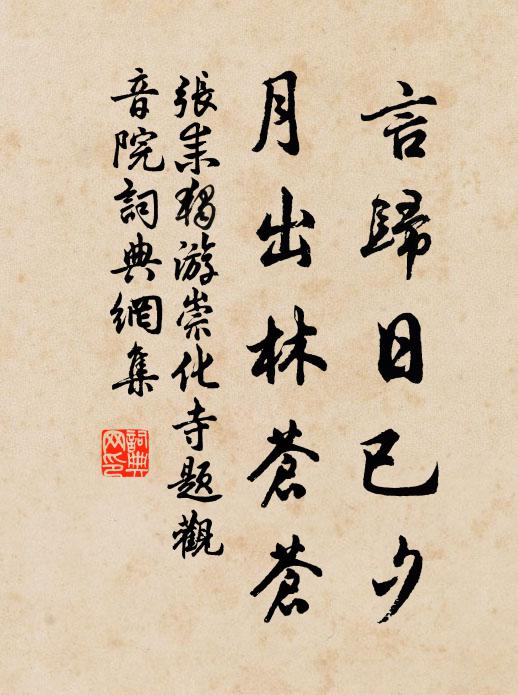 言歸日已夕
月出林蒼蒼
張耒獨游崇化寺題觀
音院詞典網集
詞典網印